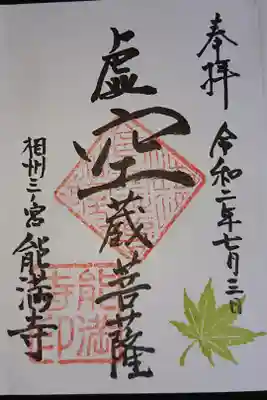 奉拝
令和二年七月三日
虚空蔵菩薩
相州三ノ宮能満寺
能満寺印